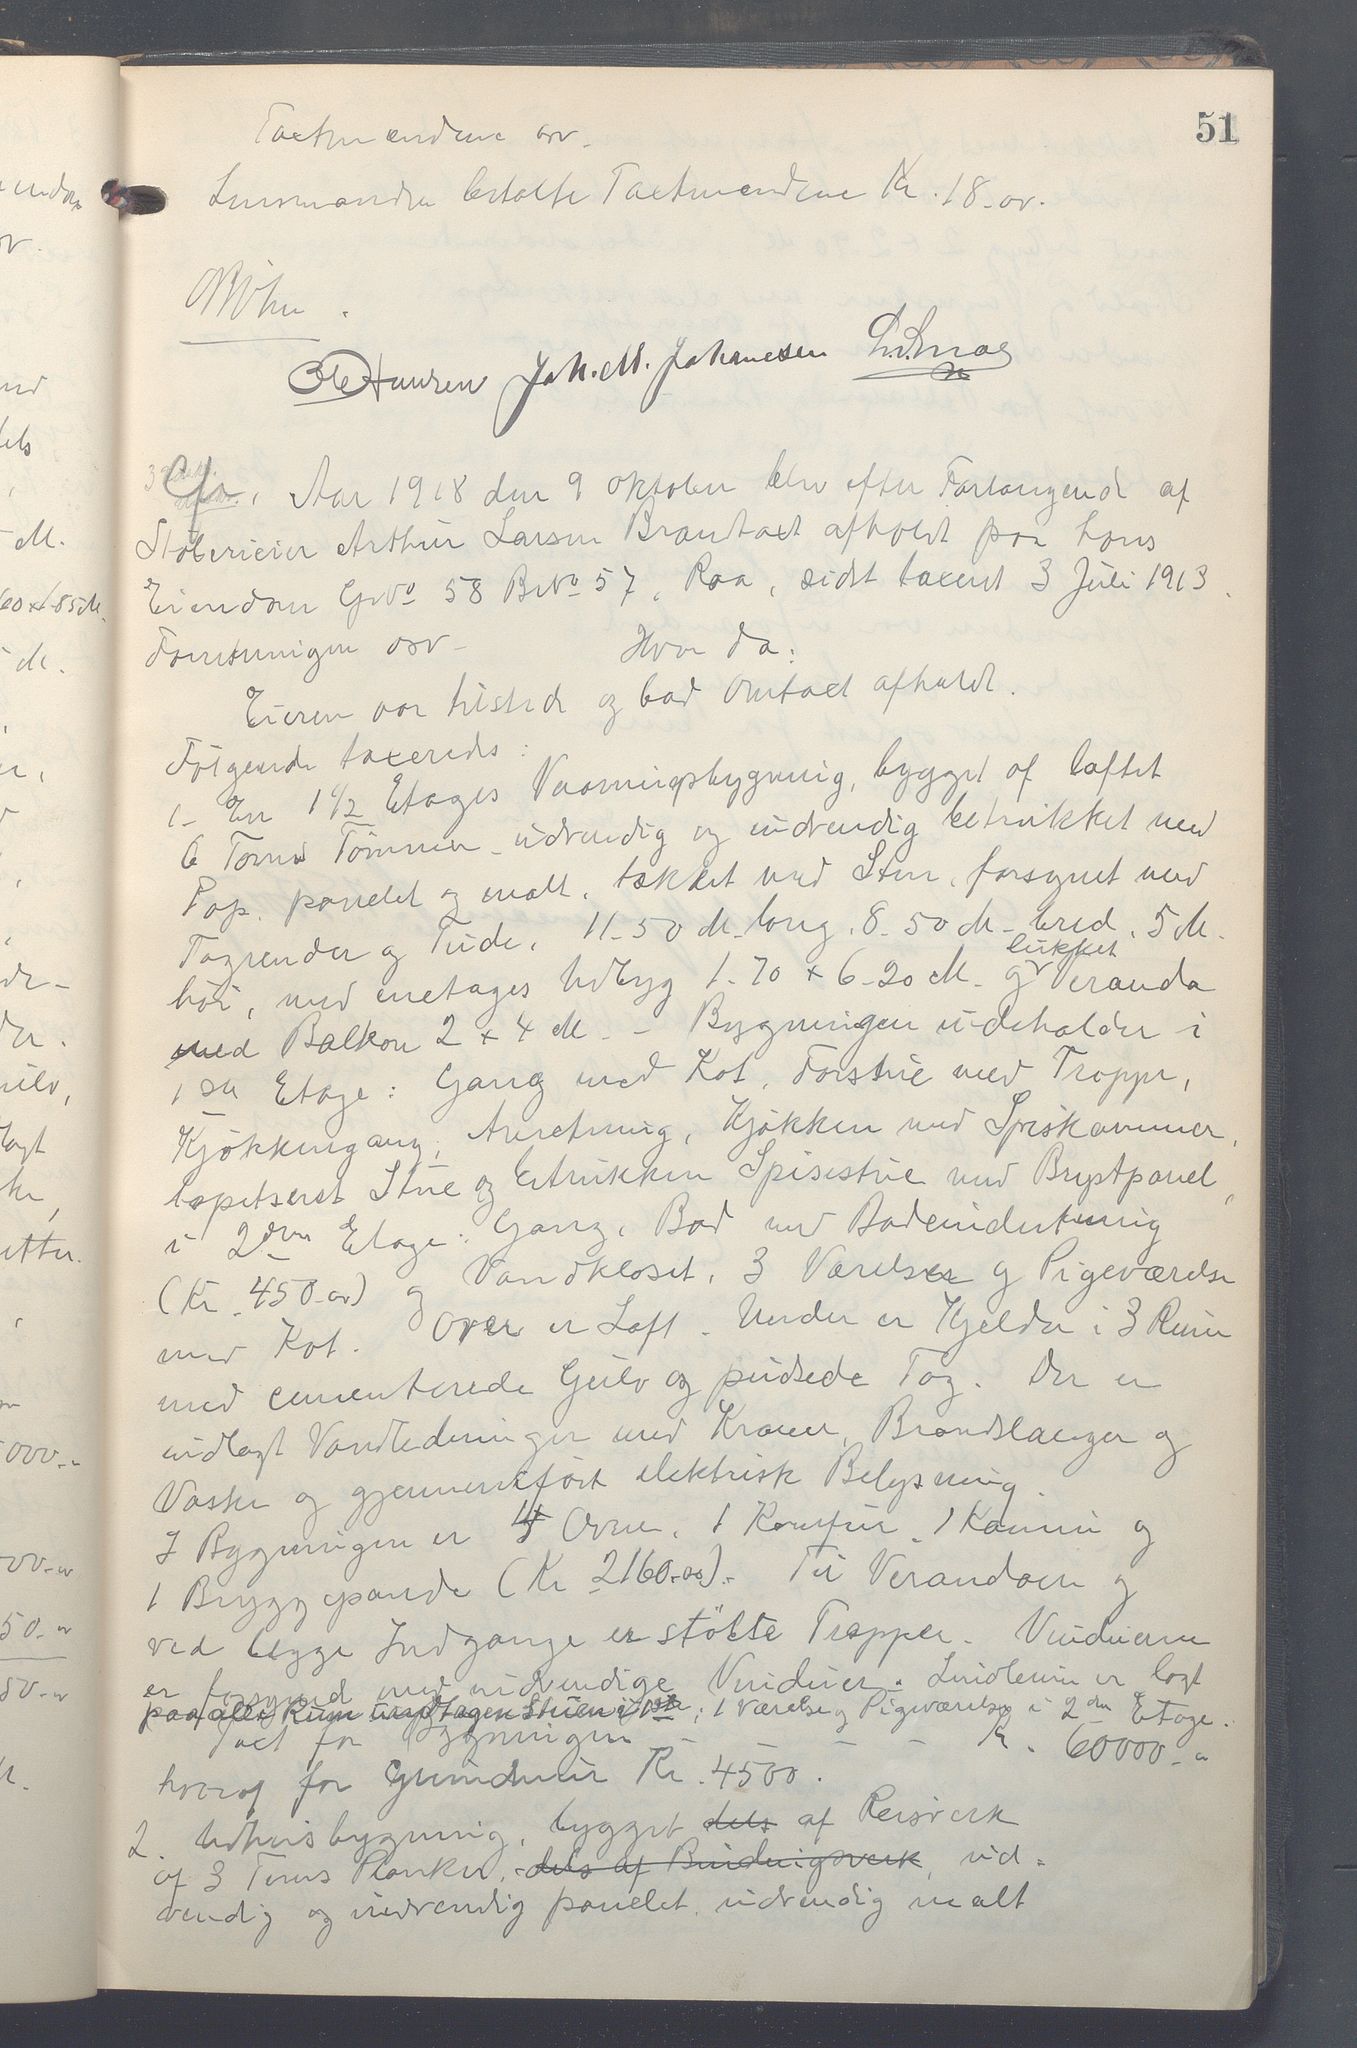 51
Taxtmændene osv.
Lensmanden betalte Taxtmændene Kr. 18.00.
Ole Hansen Joh. M. Johannesen
Aar 1918 den 9 oktober blev efter Forlangende af
Arthur Larsen Brandtaxt afholdt paa hans
Eiendom GNo 58 BNo 57, Raa, sidst taxeret 3 Juli 1913.
Forretningen osv - Hvor da:
Eieren var tilstede og bad Omtaxt afholdt.
Følgende taxeredes:
1. En 1 1/2 Etages Vaaningsbygning, bygget af laftet
6 Toms Tømmer - udvendig og indvendig betrukket med
Pap, panelet og malt, tækket med Sten, forsynet med
Tagrender og Tude. 11-50 M. lang, 8-50 M. bred, 5 M.
høi, med enetages Udbyg 1-70 x 6-20 M. og lukket Veranda
med Balkon 2 x 4 M. - Bygningen indeholder i
1ste Etage: Gang med Kot, Forstue med Trappe,
Kjøkkengang, Anretning, Kjøkken med Spiskammer,
tapetseret Stue og betrukken Spisestue med Brystpanel,
i 2den Etage: Gang, Bad med Badeindretning
(Kr. 450.00) og Vandkloset, 3 Værelser og Pigeværelse
med Kot. Over er Loft. Under er Kjelder i 3 Rum
med cementerede Gulv og pudsede Tag. Der er
indlagt Vandledninger med Kraner, Brandslanger og
Vaske og gjennemført elektrisk Belysning.
I Bygningen er 4 Ovne, 1 Komfur, 1 Kamin og
1 Bryggepande (Kr. 2160.00). Til Verandaen og
ved begge Indgange er støbte Trapper. Vinduerne
er forsynet med indvendige Vinduer. Linoleum er lagt
paa alle Rum undtagen Stuen i 1ste, 1 Værelse og Pigeværelse i 2den Etage.
Taxt for Bygningen - - - - Kr. 60000.-
hvoraf for Grundmur Kr. 4500.
2. Udhusbygning, bygget dels af Reisverk
af 3 Toms Planker, dels af Bindingsverk, ud-
vendig og indvendig panelet, udvendig malt